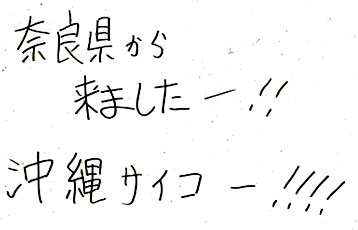 奈良県から
来ましたー!!
沖縄サイコー!!!!